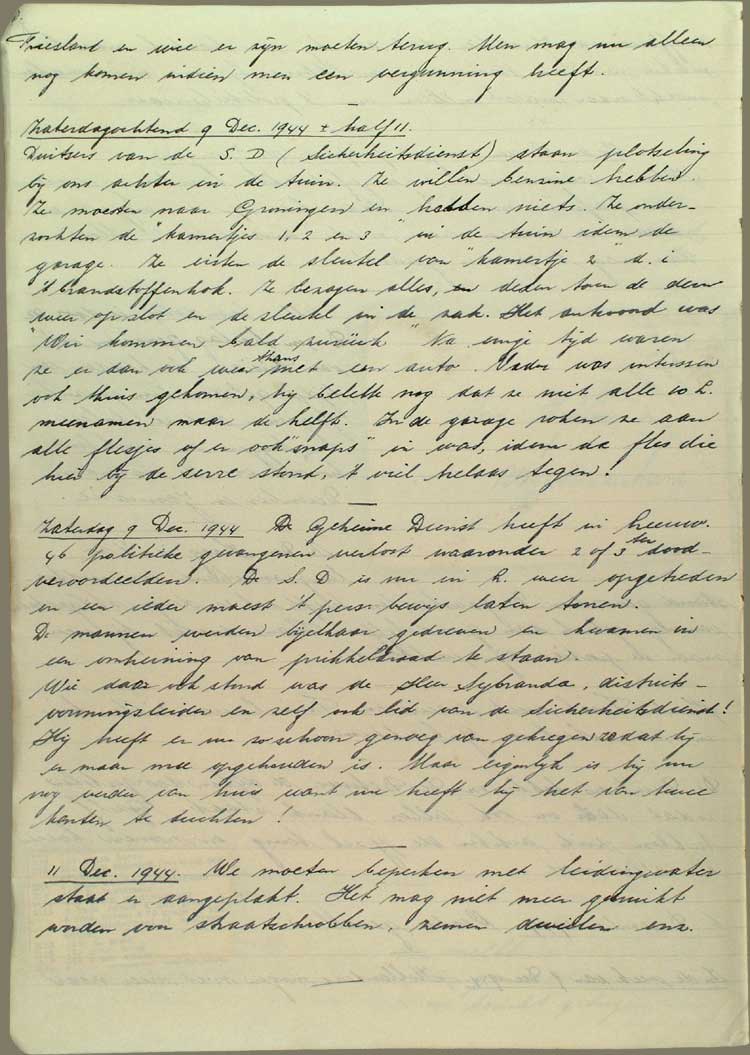 Friesland en wie er zijn moeten terug. Men mag nu alleen
nog komen indien men een vergunning heeft.
Zaterdagochtend 9 Dec. 1944 ± half 11.
Duitsers van de S.D (Sicherheitsdienst) staan plotseling
bij ons achter in de tuin. Ze willen benzine hebben.
Ze moesten naar Groningen en hadden niets. Ze onder-
zochten de "kamertjes 1, 2 en 3" in de tuin idem de
garage. Ze eisten de sleutel van "kamertje 2" d.i
't brandstoffenhok. Ze bezagen alles, en deden toen de deur
weer op slot en de sleutel in de zak. Het antwoord was
"Wir kommen bald zurück" Na enige tijd waren
ze er dan ook weer thans met een auto. Vader was intussen
ook thuis gekomen, hij belette nog dat ze niet alle 10 L.
meenamen maar de helft. In de garage roken ze aan
alle flesjes of er ook "snaps" in was, idem da fles die
hier bij de serre stond, 't viel helaas tegen!
Zaterdag 9 Dec. 1944 De Geheime Dienst heeft in Leeuw.
46 politieke gevangenen verlost waaronder 2 of 3 ter dood-
veroordeelden. De S.D is nu in L. weer opgetreden
en een ieder moest 't pers. bewijs laten tonen.
De mannen werden bijelkaar gedreven en kwamen in
een omheining van prikkeldraad te staan.
Wie daar ook stond was de Heer Sybranda, districts-
vormingsleider en zelf ook lid van de Sicherheitsdienst!
Hij heeft er nu zo schoon genoeg van gekregen zodat hij
er maar mee opgehouden is. Maar eigenlijk is hij nu
nog verder van huis want nu heeft hij het van twee
kanten te duchten!
11 Dec. 1944. We moeten beperken met leidingwater
staat er aangeplakt. Het mag niet meer gebruikt
worden voor straatschrobben, zemen dweilen enz.